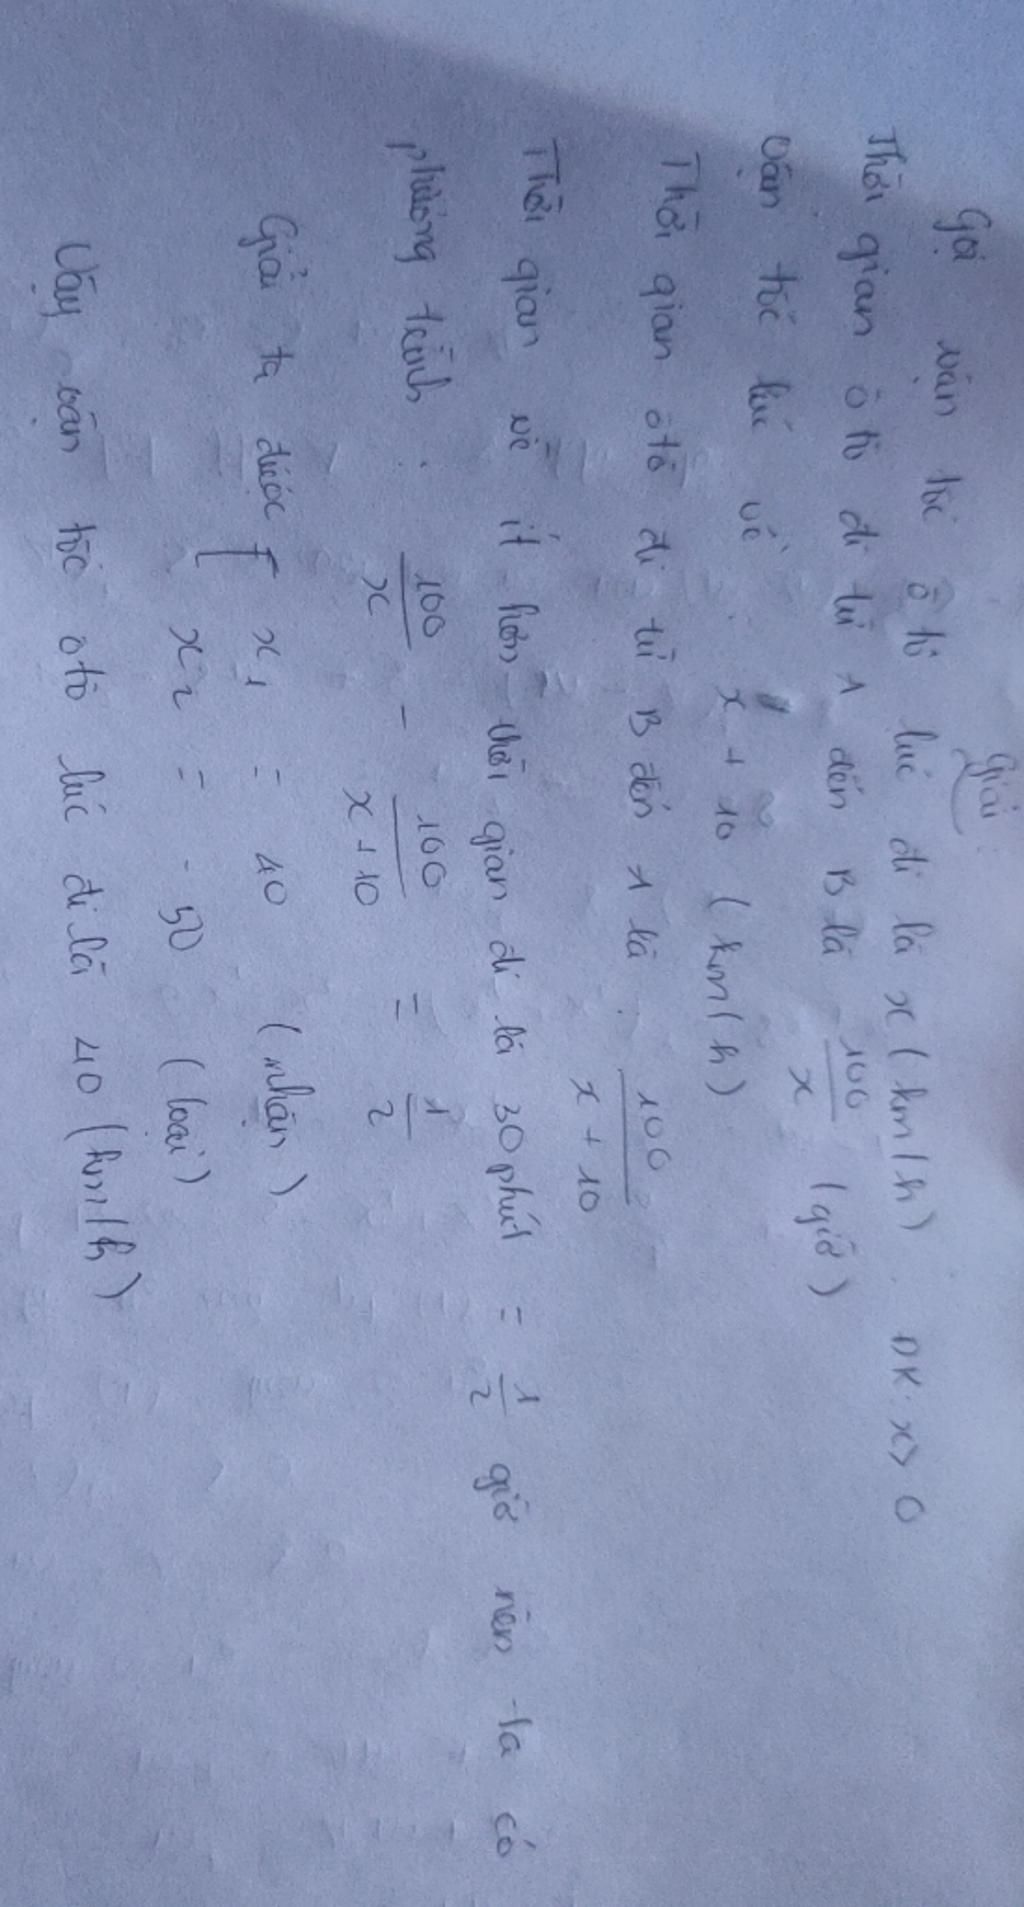 Giải
Gọi vận tốc ô tô lúc đi là x (km/h). ĐK: x > 0
Thời gian ô tô đi từ A đến B là 100/x (giờ)
Vận tốc lúc về: x + 10 (km/h)
Thời gian ôtô đi từ B đến A là: 100/(x + 10)
Thời gian về ít hơn thời gian đi là 30 phút = 1/2 giờ nên ta có
phương trình: 100/x - 100/(x + 10) = 1/2
Giải ta được [ x1 = 40 (nhận)
x2 = - 50 (loại)
Vậy vận tốc ôtô lúc đi là 40 (km/h)